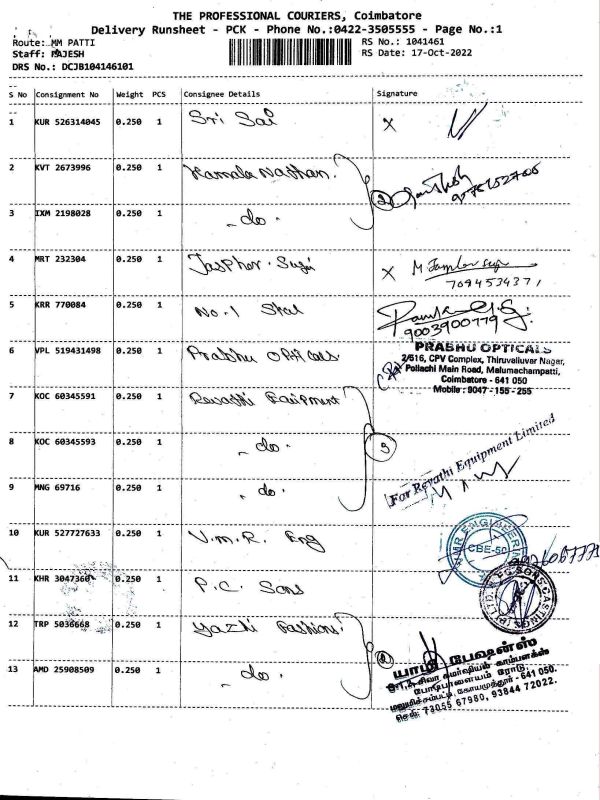 THE PROFESSIONAL COURIERS, Coimbatore
Delivery Runsheet - PCK - Phone No.:0422-3505555 - Page No.:1
Route: MM PATTI
RS No.: 1041461
Staff: RAJESH
RS Date: 17-Oct-2022
DRS No.: DCJB104146101
S No Consignment No Weight PCS Consignee Details Signature
1 KUR 526314045 0.250 1 Sri Sai X
2 KVT 2673996 0.250 1 Kamala Nathan. 2
3 IXM 2198028 0.250 1 - do -
4 MRT 232304 0.250 1 Jaspher. Sugi X
5 KRR 770084 0.250 1 No. 1 9003900779
6 VPL 519431498 0.250 1 Prabhu Opticals
PRABHU OPTICALS
2/616, CPV Complex, Thiruvalluvar Nagar,
Pollachi Main Road, Malumachampatti,
Coimbatore - 641 050
Mobile : 9047 - 155 - 255
7 KOC 60345591 0.250 1 Revathi Equipment
8 KOC 60345593 0.250 1 - do - 3
For Revathi Equipment Limited
9 MNG 69716 0.250 1 - do -
10 KUR 527727633 0.250 1 V.M.R. Eng
VMR ENGINEERING
CBE-50
11 KHR 3047360 0.250 1 P.C. Sons
12 TRP 5036668 0.250 1 Yazhi Fashions 2
13 AMD 25908509 0.250 1 - do -
யாழி பேஷன்ஸ்
போடிபாளையம் ரோடு,
கோயமுத்தூர் - 641 050.
செல்: 73055 67980, 93844 72022.